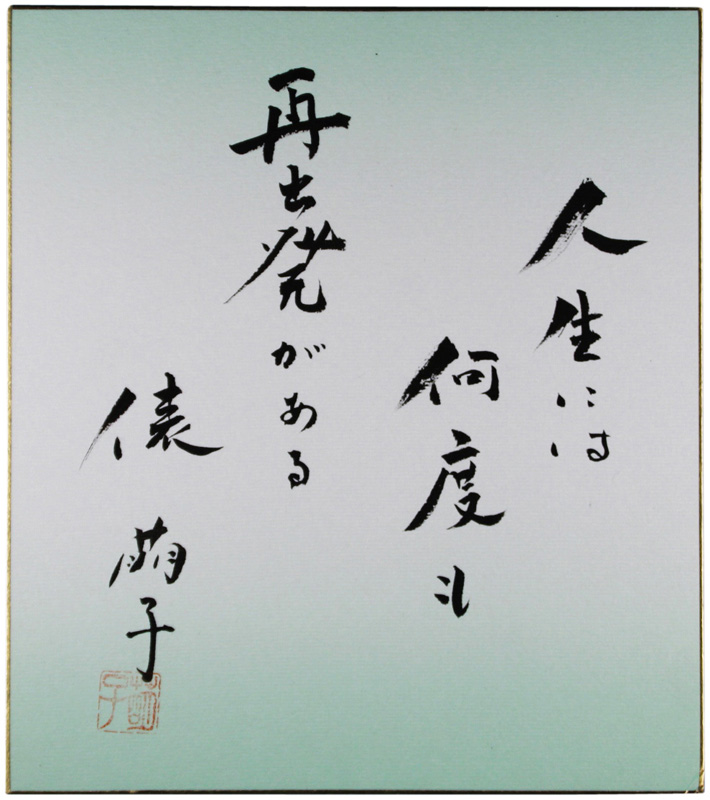 人生には
何度も
再出発がある
俵萠子
萠子